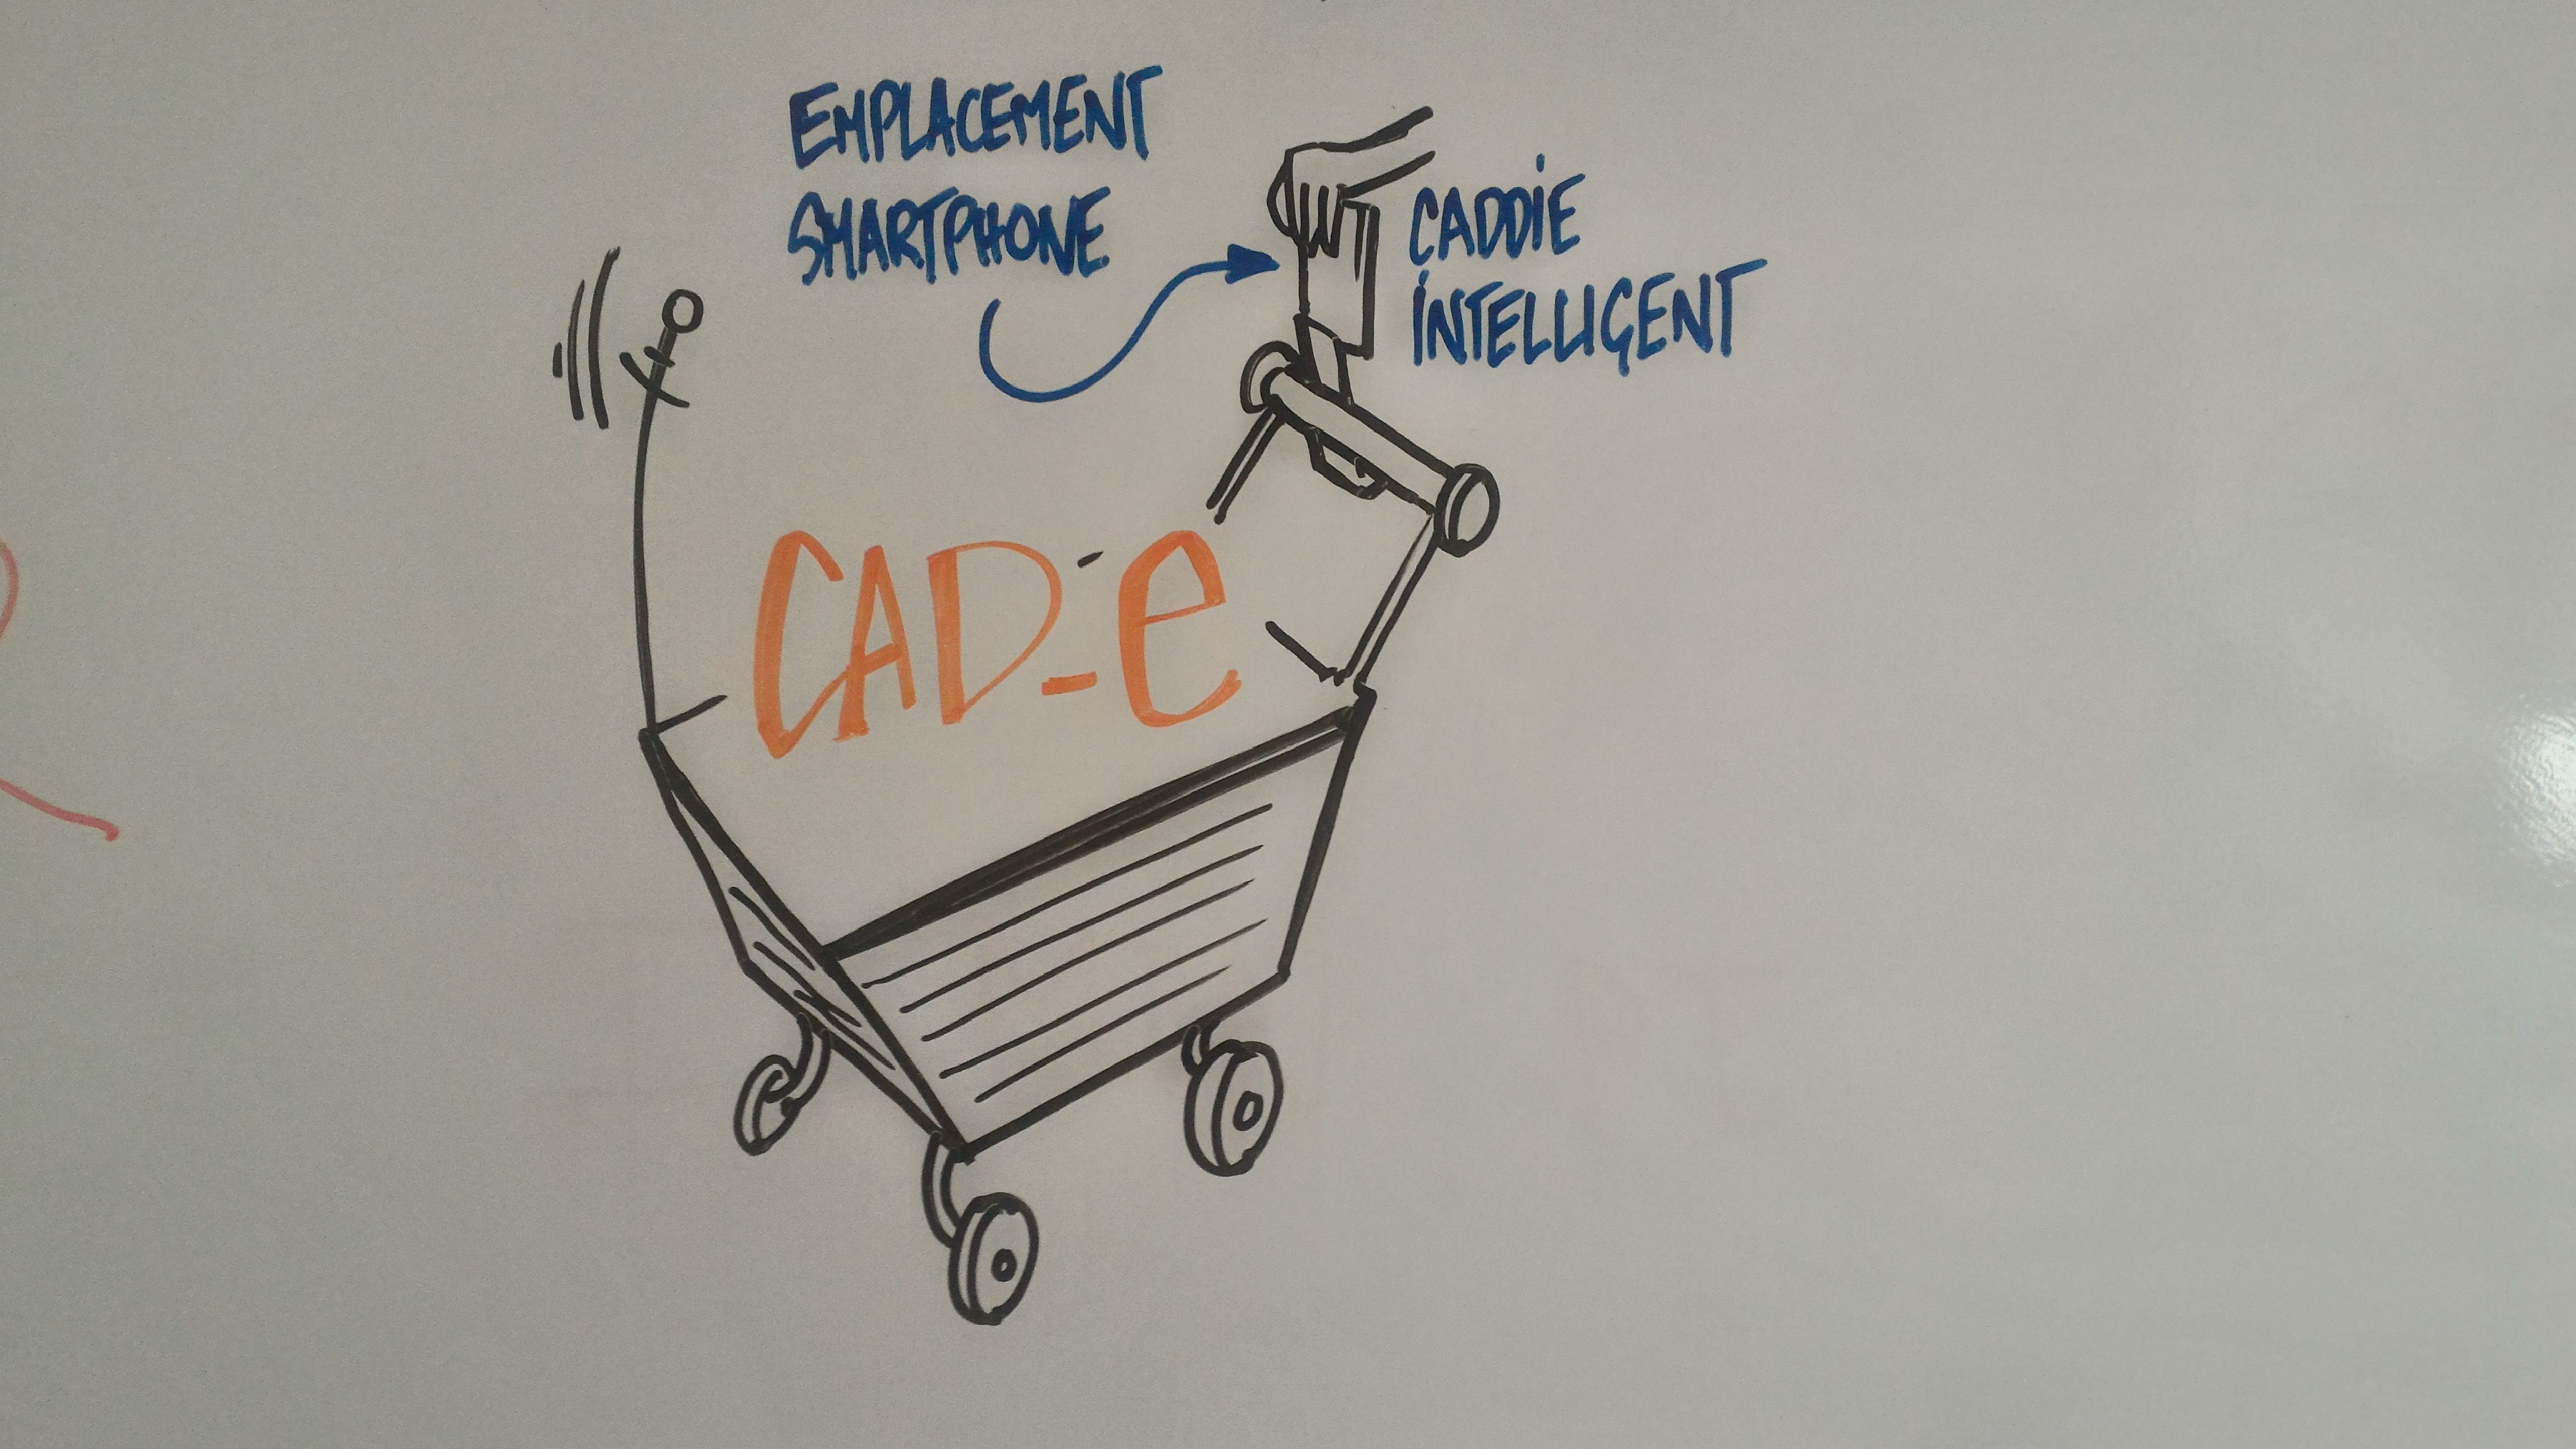 EMPLACEMENT
SMARTPHONE
CADDIE
INTELLIGENT
CAD-e